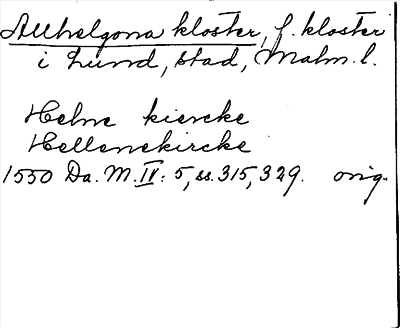 Allhelgona kloster, f. kloster
i Lund, stad, Malm. l.
Helne kiercke
Hellenekircke
1550 Da. M. IV: 5, ss. 315, 329. orig.